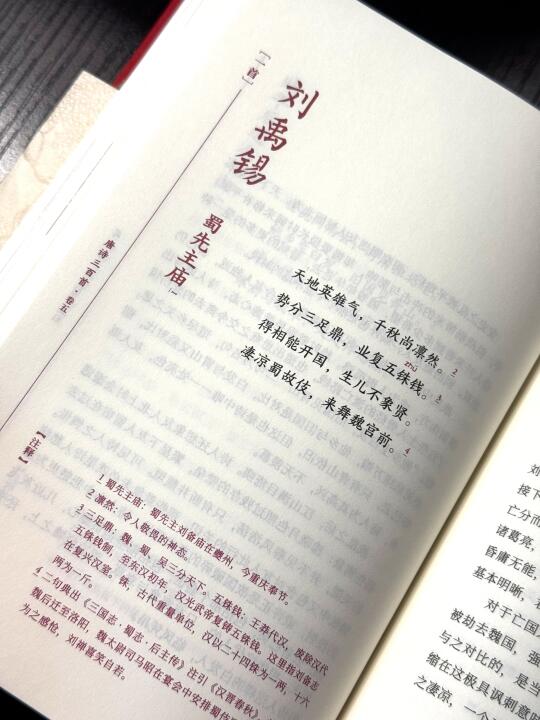 刘禹锡
【一首】
蜀先主庙 1
天地英雄气，千秋尚凛然。2
势分三足鼎，业复五铢钱。3
zhū
得相能开国，生儿不象贤。
凄凉蜀故伎，来舞魏宫前。4
唐诗三百首·卷五
【注释】
1 蜀先主庙：蜀先主刘备庙在夔州，今重庆奉节。
2 凛然：令人敬畏的神态。
3 三足鼎：魏、蜀、吴三分天下。五铢钱：王莽代汉，废除汉代
五铢钱制，至东汉初年，汉光武帝复铸五铢钱。这里指刘备志
在复兴汉室。铢，古代重量单位，汉以二十四铢为一两，十六
两为一斤。
4 二句典出《三国志·蜀志·后主传》注引《汉晋春秋》
魏后迁至洛阳，魏太尉司马昭在宴会中安排蜀
为之感怆，刘禅喜笑自若。
刘
接下
亡分而
诸葛亮，
昏庸无能，
基本明晰，
对于亡国
被劫去魏国，强
与之对比的，是当
缩在这极具讽刺意
之凄凉，一个